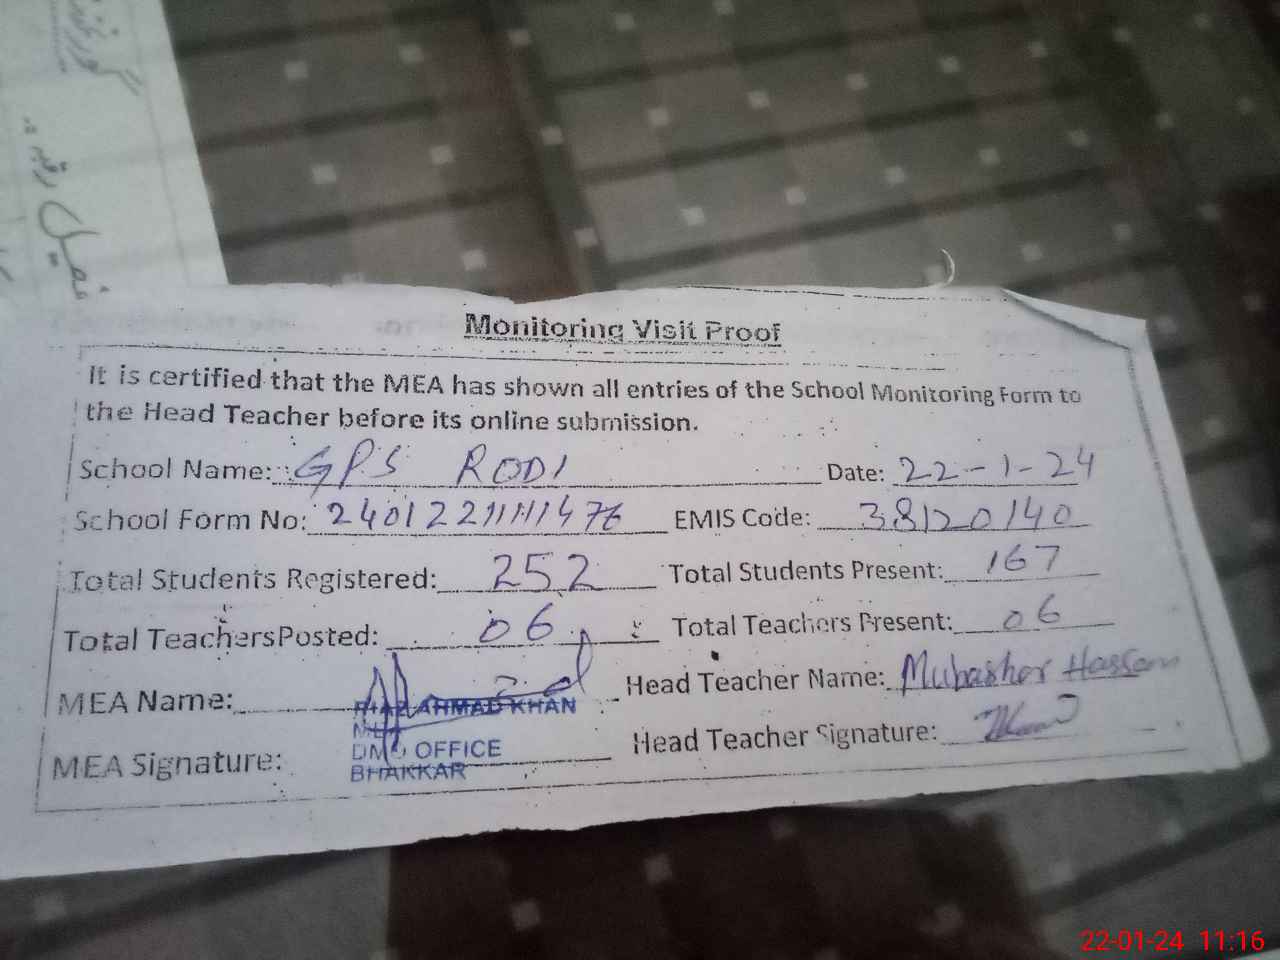 Monitoring Visit Proof
It is certified that the MEA has shown all entries of the School Monitoring Form to
the Head Teacher before its online submission.
School Name: GPS RODI Date: 22-1-24
School Form No: EMIS Code: 38120140
Total Students Registered: 252 Total Students Present: 167
Total Teachers Posted: 06 Total Teachers Present: 06
MEA Name: AHMAD KHAN Head Teacher Name: Mubasher Hassan
MEA Signature: DMO OFFICE Head Teacher Signature:
BHAKKAR
22-01-24 11:16